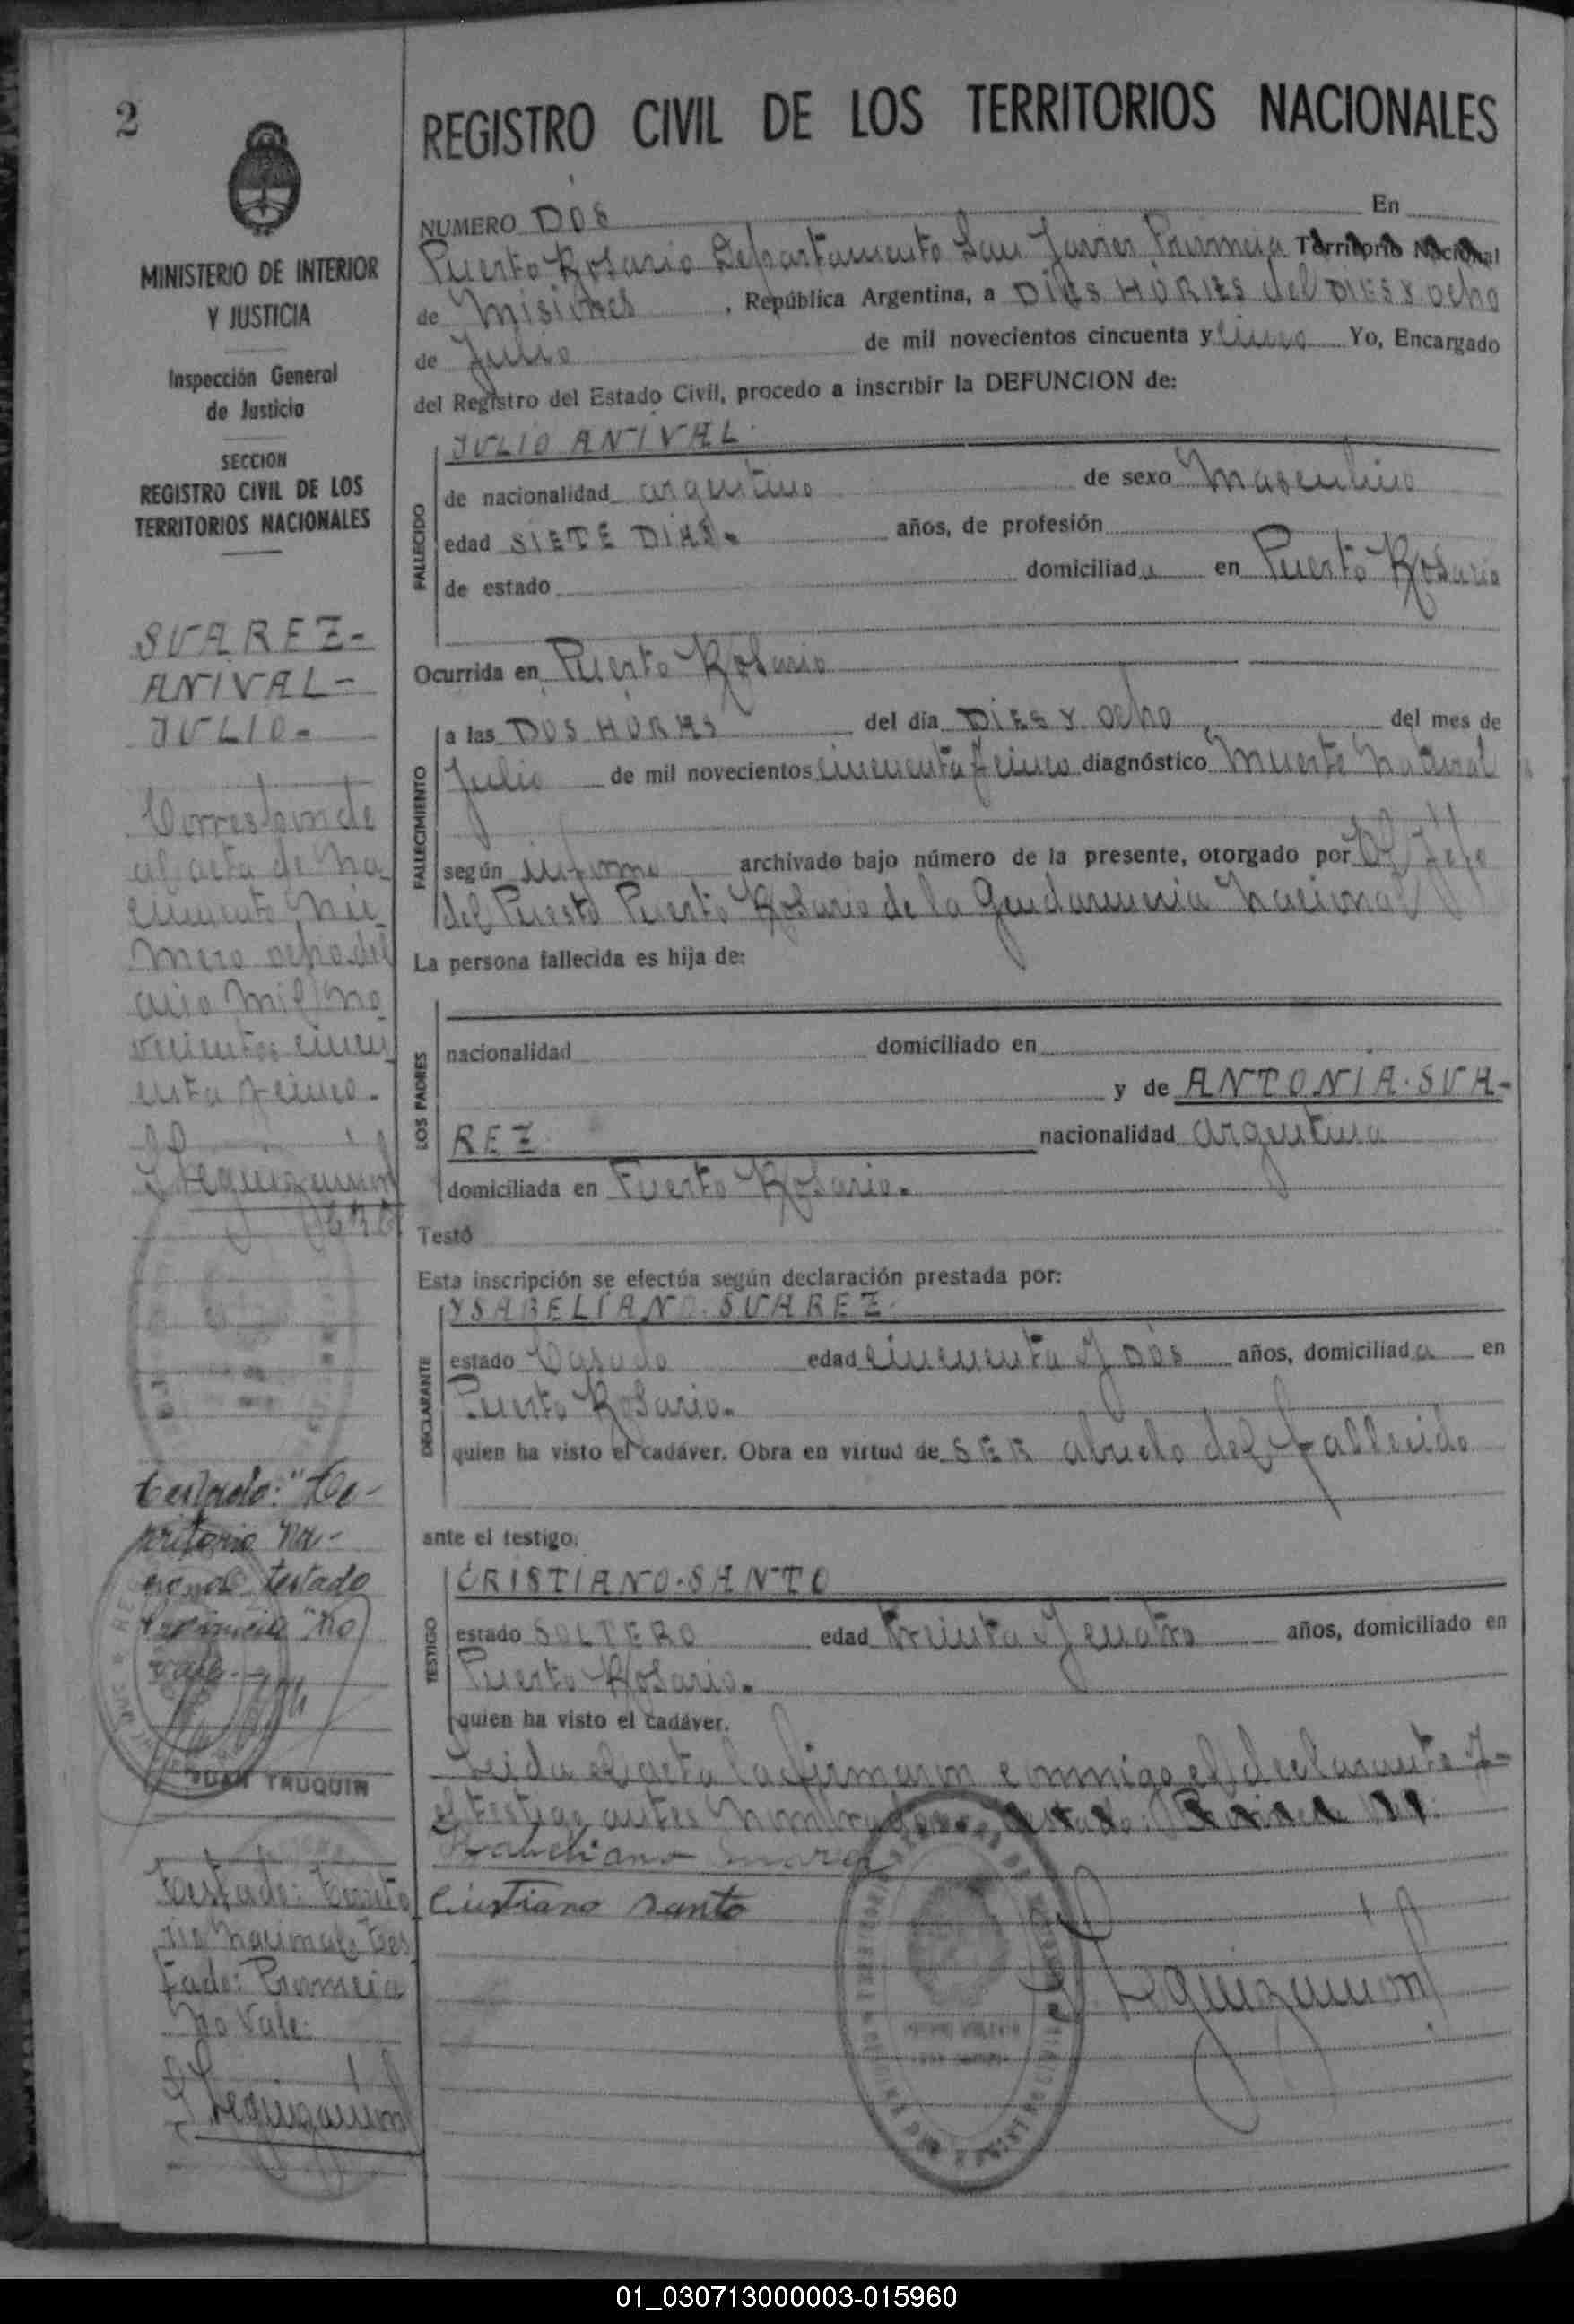 2
REGISTRO CIVIL DE LOS TERRITORIOS NACIONALES
MINISTERIO DE INTERIOR
Y JUSTICIA
Inspección General
de Justicia
SECCION
REGISTRO CIVIL DE LOS
TERRITORIOS NACIONALES
SUAREZ-
ANIVAL-
JULIO-
Corresponde
al acta de na
cimiento nú
mero ocho del
año mil no
vecientos cincu
enta y cinco.
Leguizamón
Testado: "Te-
rritorio Na-
cional testado
Provincia "No
vale.
JUAN TRUQUIN
Testado: Territo
rio Nacional Tes
tado: Provincia
No Vale.
Leguizamón
NUMERO DOS En
Puerto Rosario Departamento San Javier Provincia Territorio Nacional
de Misiones, República Argentina, a DIES HORAS del DIES Y ocho
de Julio de mil novecientos cincuenta y cinco Yo, Encargado
del Registro del Estado Civil, procedo a inscribir la DEFUNCION de:
JULIO ANIVAL
FALLECIDO
de nacionalidad argentino de sexo Masculino
edad SIETE DIAS. años, de profesión
de estado domiciliada en Puerto Rosario
Ocurrida en Puerto Rosario
FALLECIMIENTO
a las DOS HORAS del día DIES Y ocho del mes de
Julio de mil novecientos cincuenta y cinco diagnóstico Muerte Natural
según informe archivado bajo número de la presente, otorgado por El Jefe
del Puesto Puerto Rosario de la Gendarmeria Nacional
La persona fallecida es hija de:
LOS PADRES
nacionalidad domiciliado en
y de ANTONIA. SUA-
REZ nacionalidad argentina
domiciliada en Puerto Rosario.
Testó
Esta inscripción se efectúa según declaración prestada por:
YSABELIANO. SUAREZ.
DECLARANTE
estado Casado edad cincuenta y DOS años, domiciliada en
Puerto Rosario.
quien ha visto el cadáver. Obra en virtud de SER abuelo del fallecido
ante el testigo:
CRISTIANO. SANTO
TESTIGO
estado SOLTERO edad treinta y cuatro años, domiciliado en
Puerto Rosario.
quien ha visto el cadáver.
Leida el acta la firmaron conmigo el declarante y
el testigo antes nombrados
Suarez
Cristiano Santo
Leguizamón
01_030713000003-015960